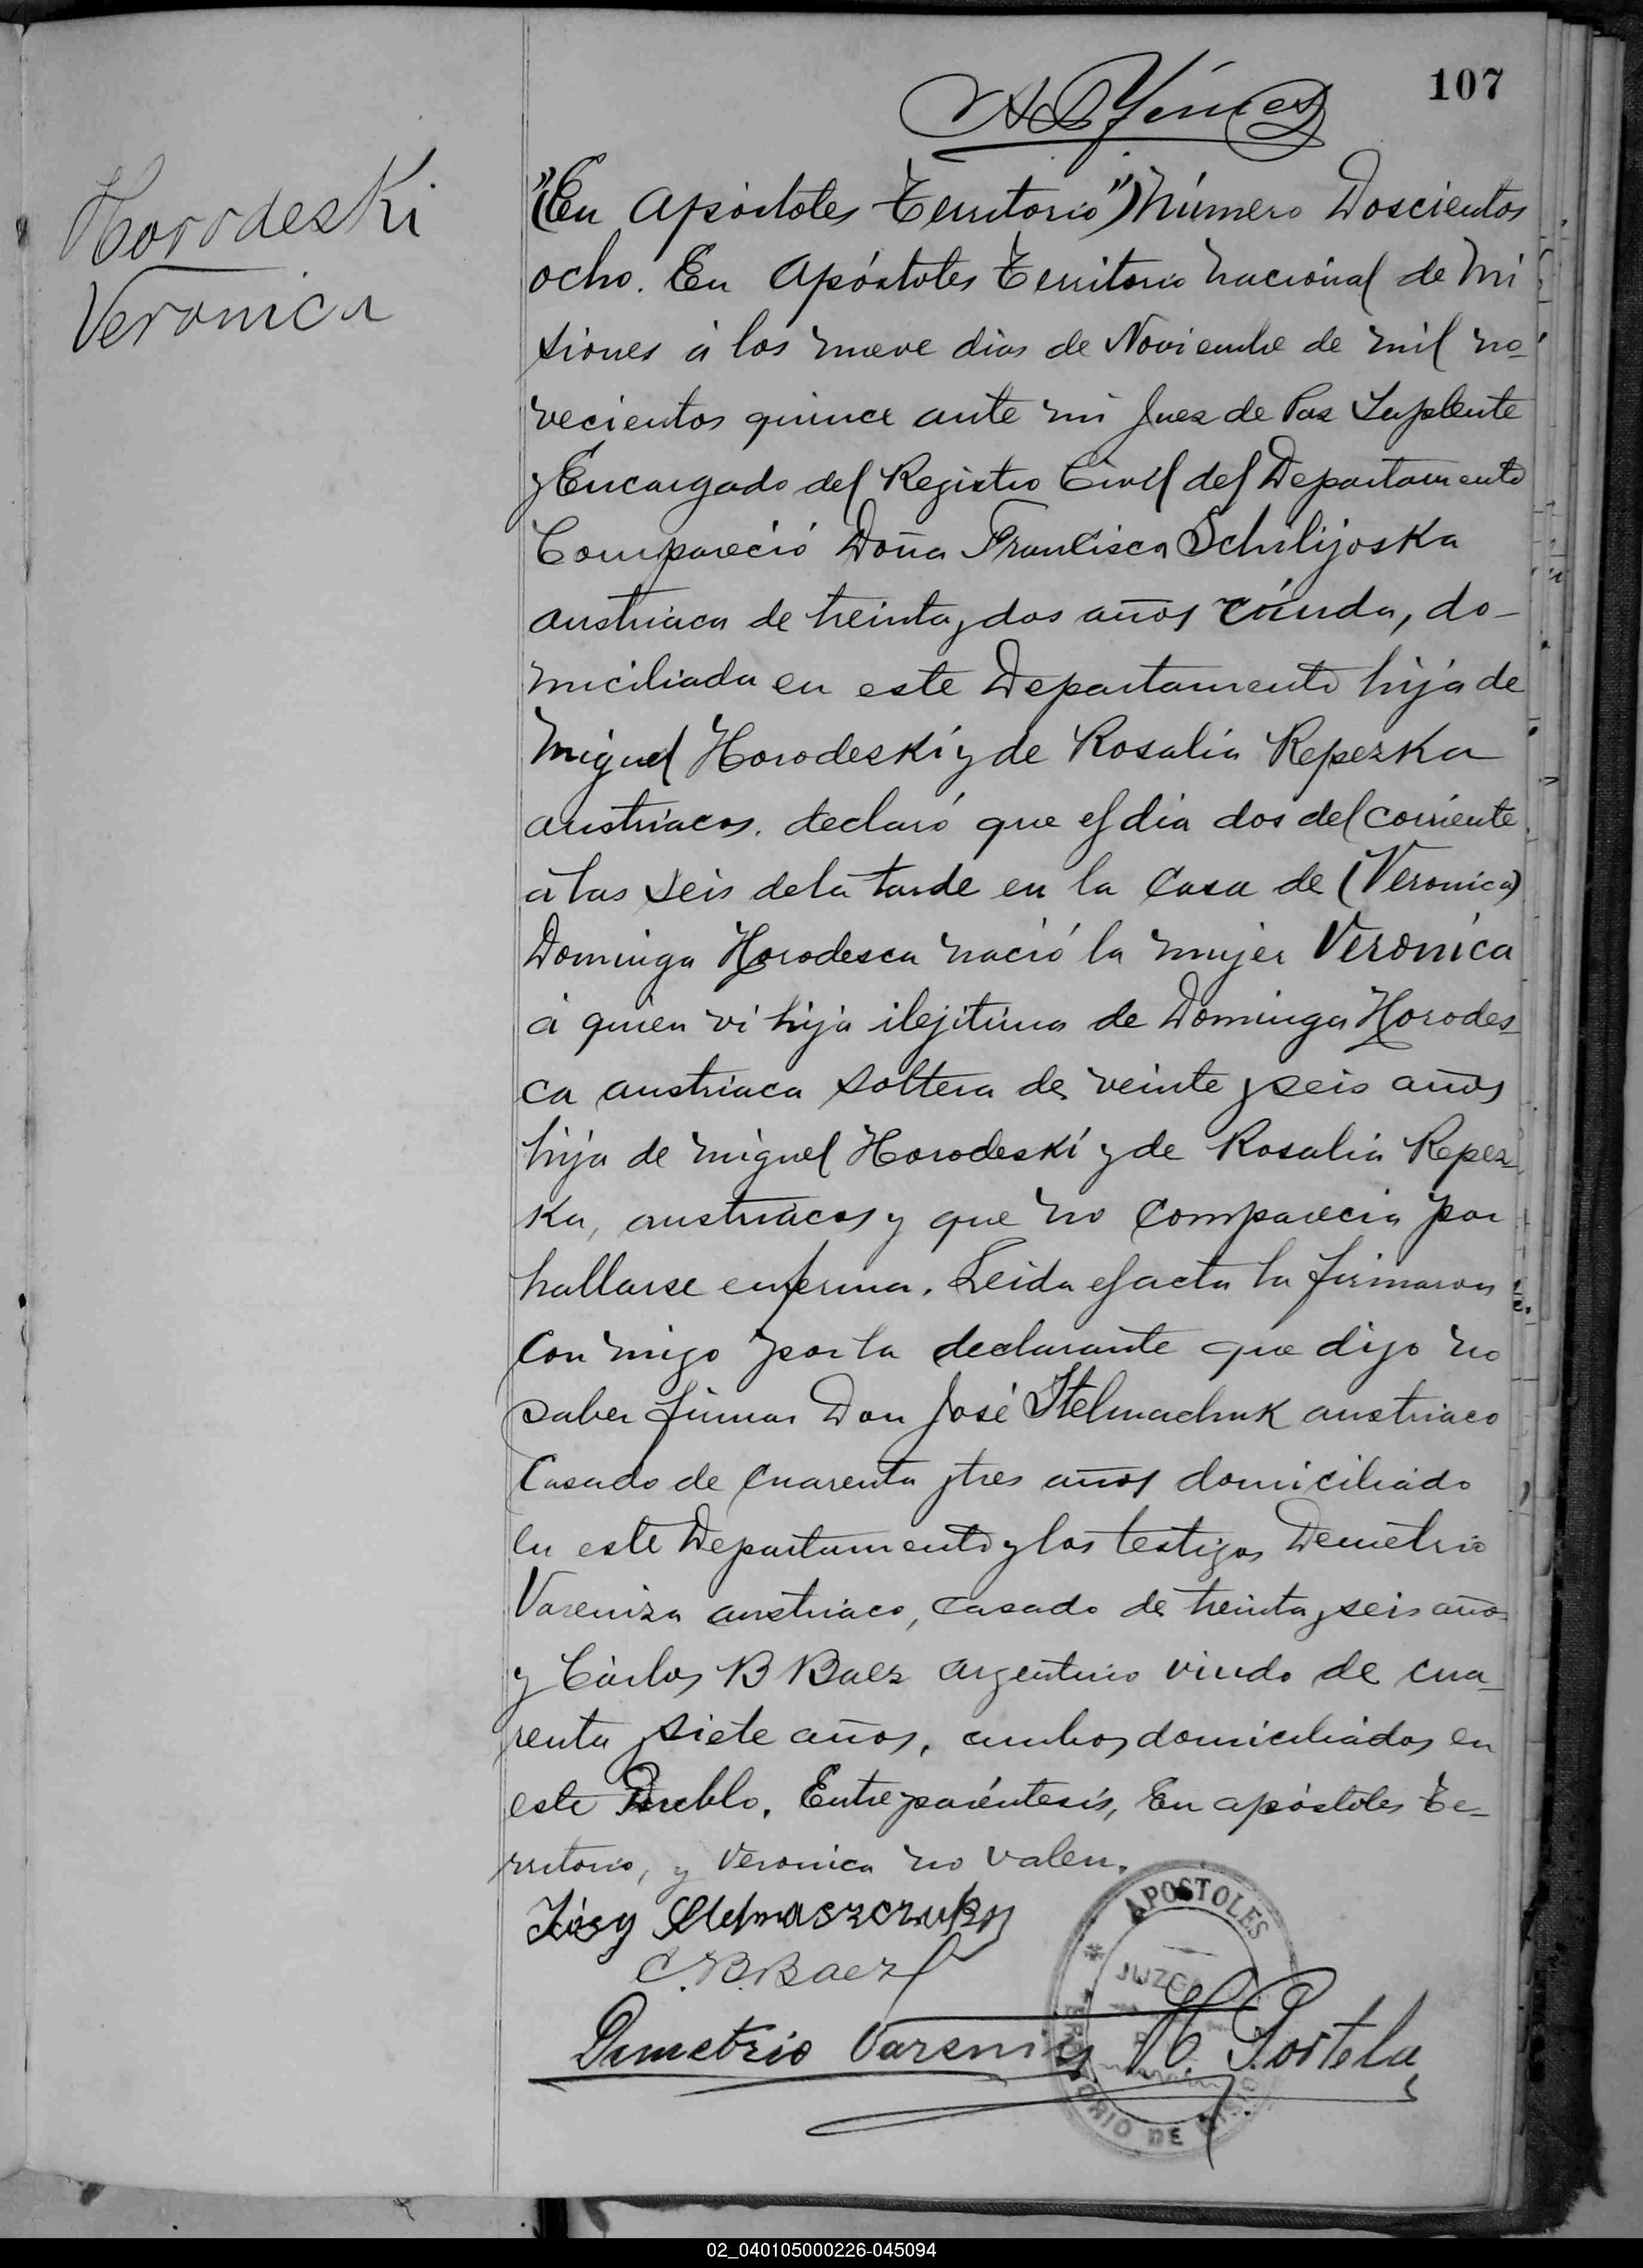 107
Horodeski
Veronica
"(En Apóstoles Territorio") Número Doscientos
ocho. En Apóstoles Territorio Nacional de Mi
siones á los nueve dias de Noviembre de mil no-
vecientos quince ante mi Juez de Paz Suplente
y Encargado del Registro Civil del Departamento
Compareció Doña Francisca Schilijoska
austriaca de treinta y dos años viuda, do-
miciliada en este Departamento hija de
Miguel Horodeski y de Rosalia Repezka
austriacos. declaró que el dia dos del corriente
á las seis de la tarde en la Casa de (Veronica)
Dominga Horodesca nació la mujer Veronica
á quien vi hija ilejitima de Dominga Horodes-
ca austriaca soltera de veinte y seis años
hija de Miguel Horodeski y de Rosalia Repez-
ka, austriacos y que no comparecia por
hallarse enferma. Leida el acta la firmaron
con migo por la declarante que dijo no
saber firmar Don José Stelmachuk austriaco
Casado de cuarenta y tres años domiciliado
en este Departamento y los testigos Demetrio
Vareniza austriaco, casado de treinta y seis años
y Cárlos B Baez argentino viudo de cua-
renta y siete años, ambos domiciliados en
este Pueblo. Entre paréntesis, En apóstoles Te-
rritorio, y Veronica no valen.
C. B. Baez
Demetrio H. Portela
APOSTOLES
02_040105000226-045094